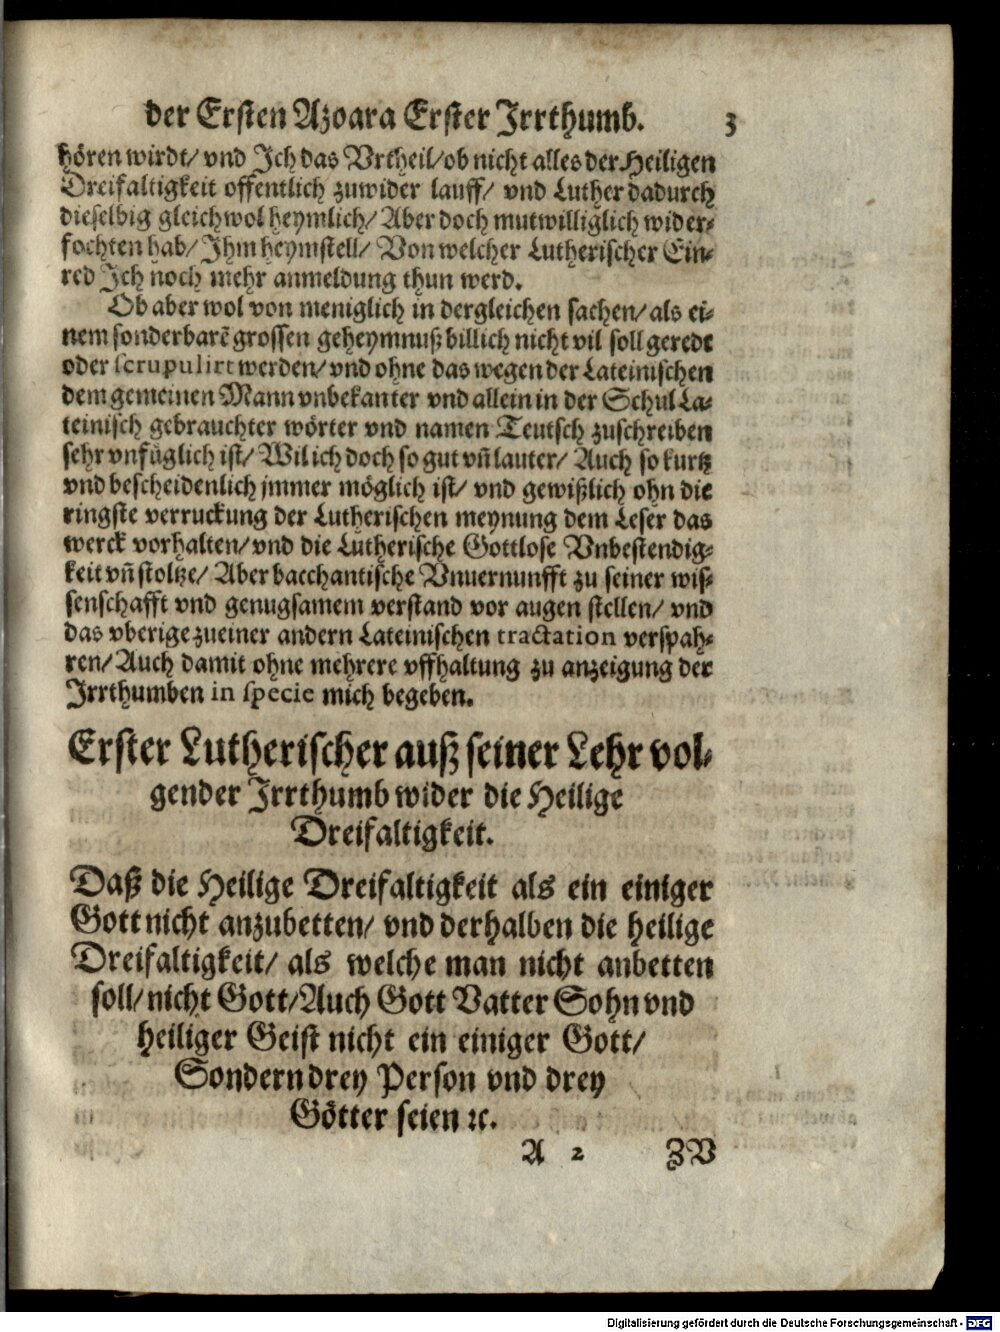 der Ersten Azoara Erster Irrthumb. 3
hören wirdt/ vnd Ich das Vrtheil/ ob nicht alles der Heiligen
Dreifaltigkeit offentlich zuwider lauff/ vnd Luther dadurch
dieselbig gleichwol heymlich/ Aber doch mutwilliglich wider-
fochten hab/ Ihm heymstell/ Von welcher Lutherischer Ein-
red Ich noch mehr anmeldung thun werd.
Ob aber wol von meniglich in dergleichen sachen/ als ei-
nem sonderbarẽ grossen geheymnuß billich nicht vil soll geredt
oder scrupulirt werden/ vnd ohne das wegen der Lateinischen
dem gemeinen Mann vnbekanter vnd allein in der Schul La-
teinisch gebrauchter wörter vnd namen Teutsch zuschreiben
sehr vnfüglich ist/ Wil ich doch so gut vñ lauter/ Auch so kurtz
vnd bescheidenlich jmmer möglich ist/ vnd gewißlich ohn die
ringste verruckung der Lutherischen meynung dem Leser das
werck vorhalten/ vnd die Lutherische Gottlose Vnbestendig-
keit vñ stoltze/ Aber bacchantische Vnuernunfft zu seiner wis-
senschafft vnd genugsamem verstand vor augen stellen/ vnd
das vberige zu einer andern Lateinischen tractation verspah-
ren/ Auch damit ohne mehrere vffhaltung zu anzeigung der
Irrthumben in specie mich begeben.
Erster Lutherischer auß seiner Lehr vol-
gender Irrthumb wider die Heilige
Dreifaltigkeit.
Daß die Heilige Dreifaltigkeit als ein einiger
Gott nicht anzubetten/ vnd derhalben die heilige
Dreifaltigkeit/ als welche man nicht anbetten
soll/ nicht Gott/ Auch Gott Vatter Sohn vnd
heiliger Geist nicht ein einiger Gott/
Sondern drey Person vnd drey
Götter seien ꝛc.
A 2 ZV
Digitalisierung gefördert durch die Deutsche Forschungsgemeinschaft - DFG